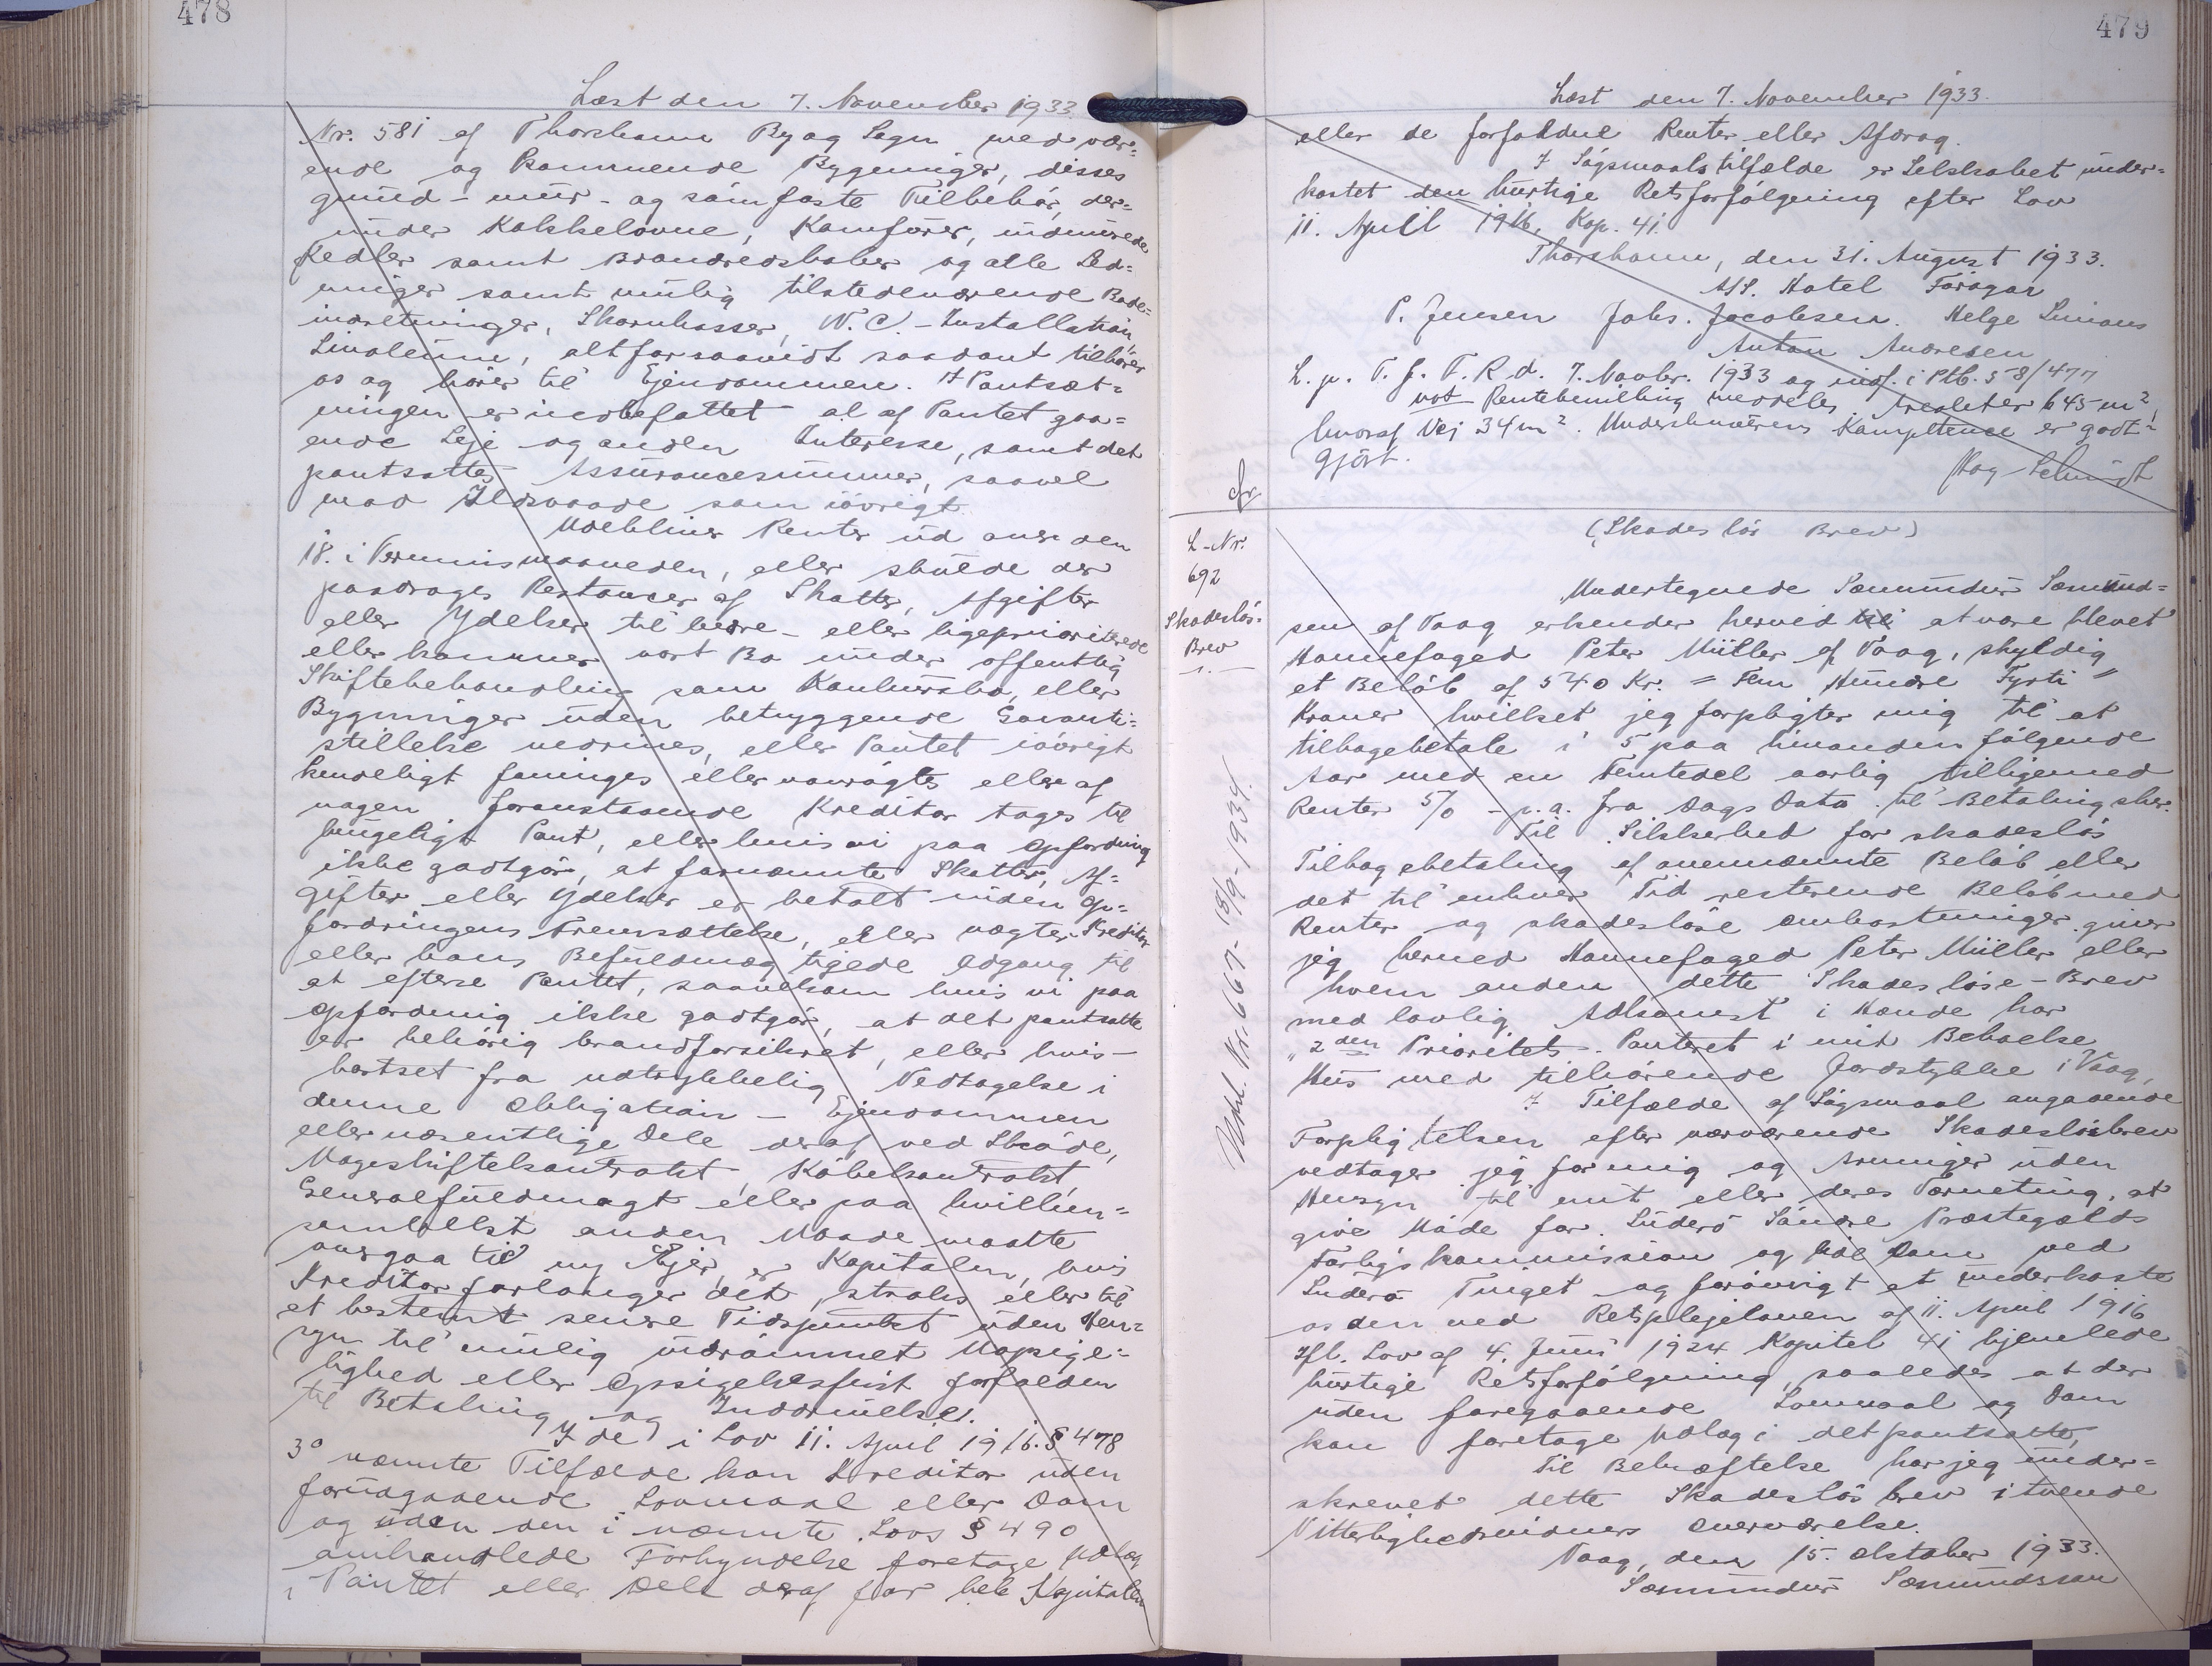 478
Læst den 7. November 1933
Nr. 581 af Thorshavn By og Sogn med vær=
ende og kommende Bygninger, disses
grund- mur- og sømfaste Tilbehør, der=
under Kakkelovne, Komfurer, indmurede
Kedler samt Brandredskaber og alle Led=
ninger samt mulig tilstedeværende Bade=
indretninger, Skarnkasser, W.C.-Installation,
Linoleum, altforsaavidt saadant tilhører
os og hører til Ejendommen. I Pantsæt=
ningen er indbefattet al af Pantet gaa=
ende Leje og anden Interesse, samt det
pantsattes Assurancesummer, saavel
mod Ildsvaade som iøvrigt.
Udebliver Renter ud over den
18. i Terminsmaaneden, eller skulde der
paadrages Restancer af Skatter, Afgifter
eller Ydelser til bedre- eller ligeprioriterede
eller kommer vort Bo under offentlig
Skiftebehandling som Konkursbo, eller
Bygninger uden betryggende Garanti=
stillelse nedrives, eller Pantet iøvrigt
kendeligt forringes eller vanrøgtes eller af
nogen foranstaaende Kreditor tages til
brugeligt Pant, eller hvis vi paa Opfordring
ikke godtgør, at fornævnte Skatter, Af=
gifter eller Ydelser er betalt inden Op=
fordringens Fremsættelse, eller nægter Kreditor
eller hans Befuldmægtigede Adgang til
at efterse Pantet, saavelsom hvis vi paa
Opfordring ikke godtgør, at det pantsatte
er behørig brandforsikret, eller hvis -
bortset fra udtrykkelig Vedtagelse i
denne Obligation - Ejendommen
eller væsentlige Dele deraf ved Skøde,
Mageskiftekontrakt, Købekontrakt,
Generalfuldmagt eller paa hvilken=
somhelst anden Maade maatte
overgaa til ny Ejer, er Kapitalen, hvis
Kreditor forlanger det, straks eller til
et bestemt senere Tidspunkt uden Hen=
syn til mulig indrømmet Uopsige=
lighed eller Opsigelsesfrist forfalden
til Betaling og Inddrivelse.
I de i Lov 11. April 1916. § 478
3° nævnte Tilfælde kan Kreditor uden
forudgaaende Lovmaal eller Dom
og uden den i nævnte Lovs § 490
omhandlede Forkyndelse foretage Udlæg
i Pantet eller Dele deraf for hele Kapitalen
479
Læst den 7. November 1933.
eller de forfaldne Renter eller Afdrag.
I Søgsmaalstilfælde er Selskabet under=
kastet den hurtige Retsforfølgning efter Lov
11. April 1916, Kap. 41.
Thorshavn, den 31. August 1933.
A/S. Hotel Føroyar
P. Jensen Johs. Jacobsen. Helge
Anton Andresen
L. p. T. f. F. R d. 7. Novbr. 1933 og indf. i Ptb. 58/477
not meddeles Arealet er 645 m²,
hvoraf Vej 34 m². Underskrivernes Kompetence er godt=
gjort.
L-Nr.
692
Skadesløs-
Brev
Udsl. Nr. 667- 18/9-1934.
(Skadesløs Brev)
Undertegnede Sæmundur Sæmund=
sen af Vaag erkender herved at være blevet
Havnefoged Peter Müller af Vaag, skyldig
et Beløb af 540 Kr. = Fem Hundre Fyrti =
Kroner hvilket jeg forpligter mig til at
tilbagebetale i 5 paa hinanden følgende
Aar med en Femtedel aarlig tilligemed
Renter 5% - p.a. fra Dags Dato til Betaling sker.
Til Sikkerhed for skadesløs
Tilbagebetaling af ovennævnte Beløb eller
det til enhver Tid resterende Beløb med
Renter og skadesløse Omkostninger giver
jeg herved Havnefoged Peter Müller eller
hvem anden dette Skadesløse-Brev
med lovlig Adkomst i Hænde har
"2den Prioritets- Panteret i mit Beboelse
Hus med tilhørende Jordstykke i Vaag,
I Tilfælde af Søgsmaal angaaende
Forpligtelsen efter nærværende Skadesløsbrev
vedtager jeg for mig og Arvinger uden
Hensyn til mit eller deres Værneting, at
give Møde for Suderø Søndre Præstegælds
Forligskommission og lide Dom ved
Suderø Tinget og forøvrigt at underkaste
os den ved Retsplejeloven af 11. April 1916
jfl. Lov af 4. Juni 1924 Kapitel 41 hjemlede
hurtige Retsforfølgning, saaledes at der
uden foregaaende Lovmaal og Dom
kan foretage Udlæg i det pantsatte,
Til Bekræftelse har jeg under=
skrevet dette Skadesløsbrev i tvende
Vitterlighedsvidners Overværelse.
Vaag, den 15. Oktober 1933.
Sæmundur Sæmundsson